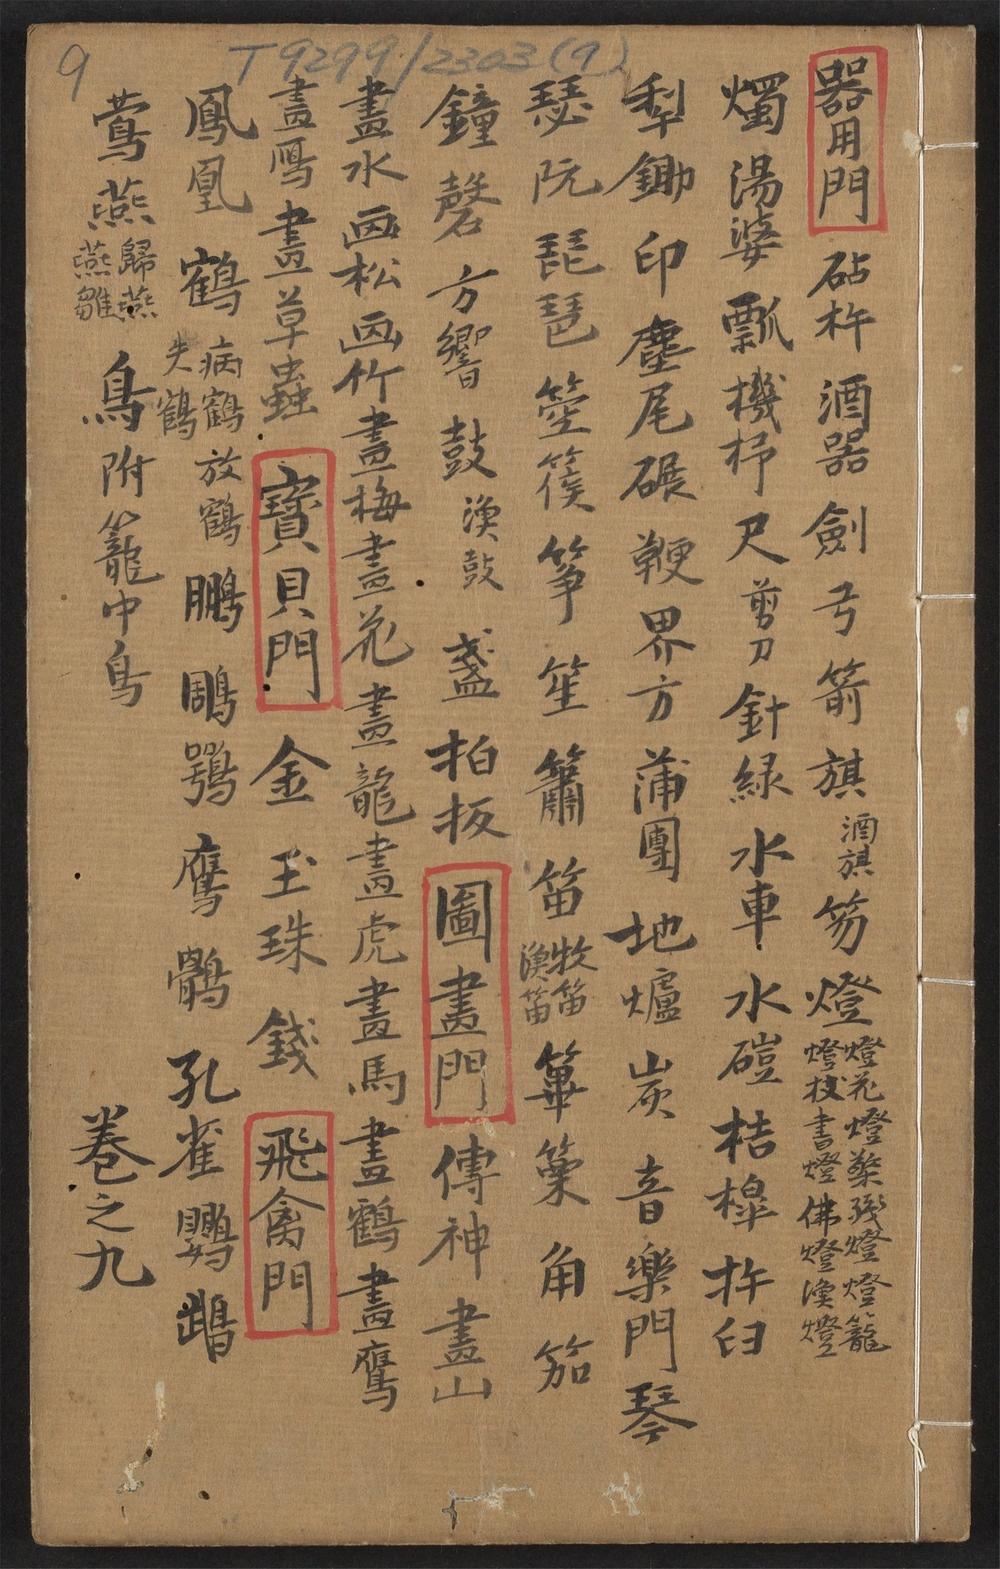 9
T9299/2303(9)
器用門 砧杵 酒器 劍 弓 箭 旗 酒旗 笏 燈 燈花 燈檠 殘燈 燈籠 燈枝 書燈 佛燈 漁燈
燭 湯婆 瓢 機杼 尺 剪刀 針線 水車 水磑 桔槹 杵臼
犁鋤 印 麈尾 碾 鞭 界方 蒲團 地爐 炭 音樂門 琴
瑟 阮 琵琶 箜篌 箏 笙 簫 笛 牧笛 漁笛 篳篥 角 笳
鐘 磬 方響 鼓 漁鼓 盞 拍板 圖畫門 傳神 畫山
畫水 画松 画竹 畫梅 畫花 畫龍 畫虎 畫馬 畫鶴 畫鷹
畫鴈 畫草蟲 寶貝門 金 玉 珠 錢 飛禽門
鳳凰 鶴 病鶴 放鶴 失鶴 鵬 鵰 鶚 鷹 鶻 孔雀 鸚鵡
鶯 燕 歸燕 燕雛 鳥 附 籠中鳥 卷之九